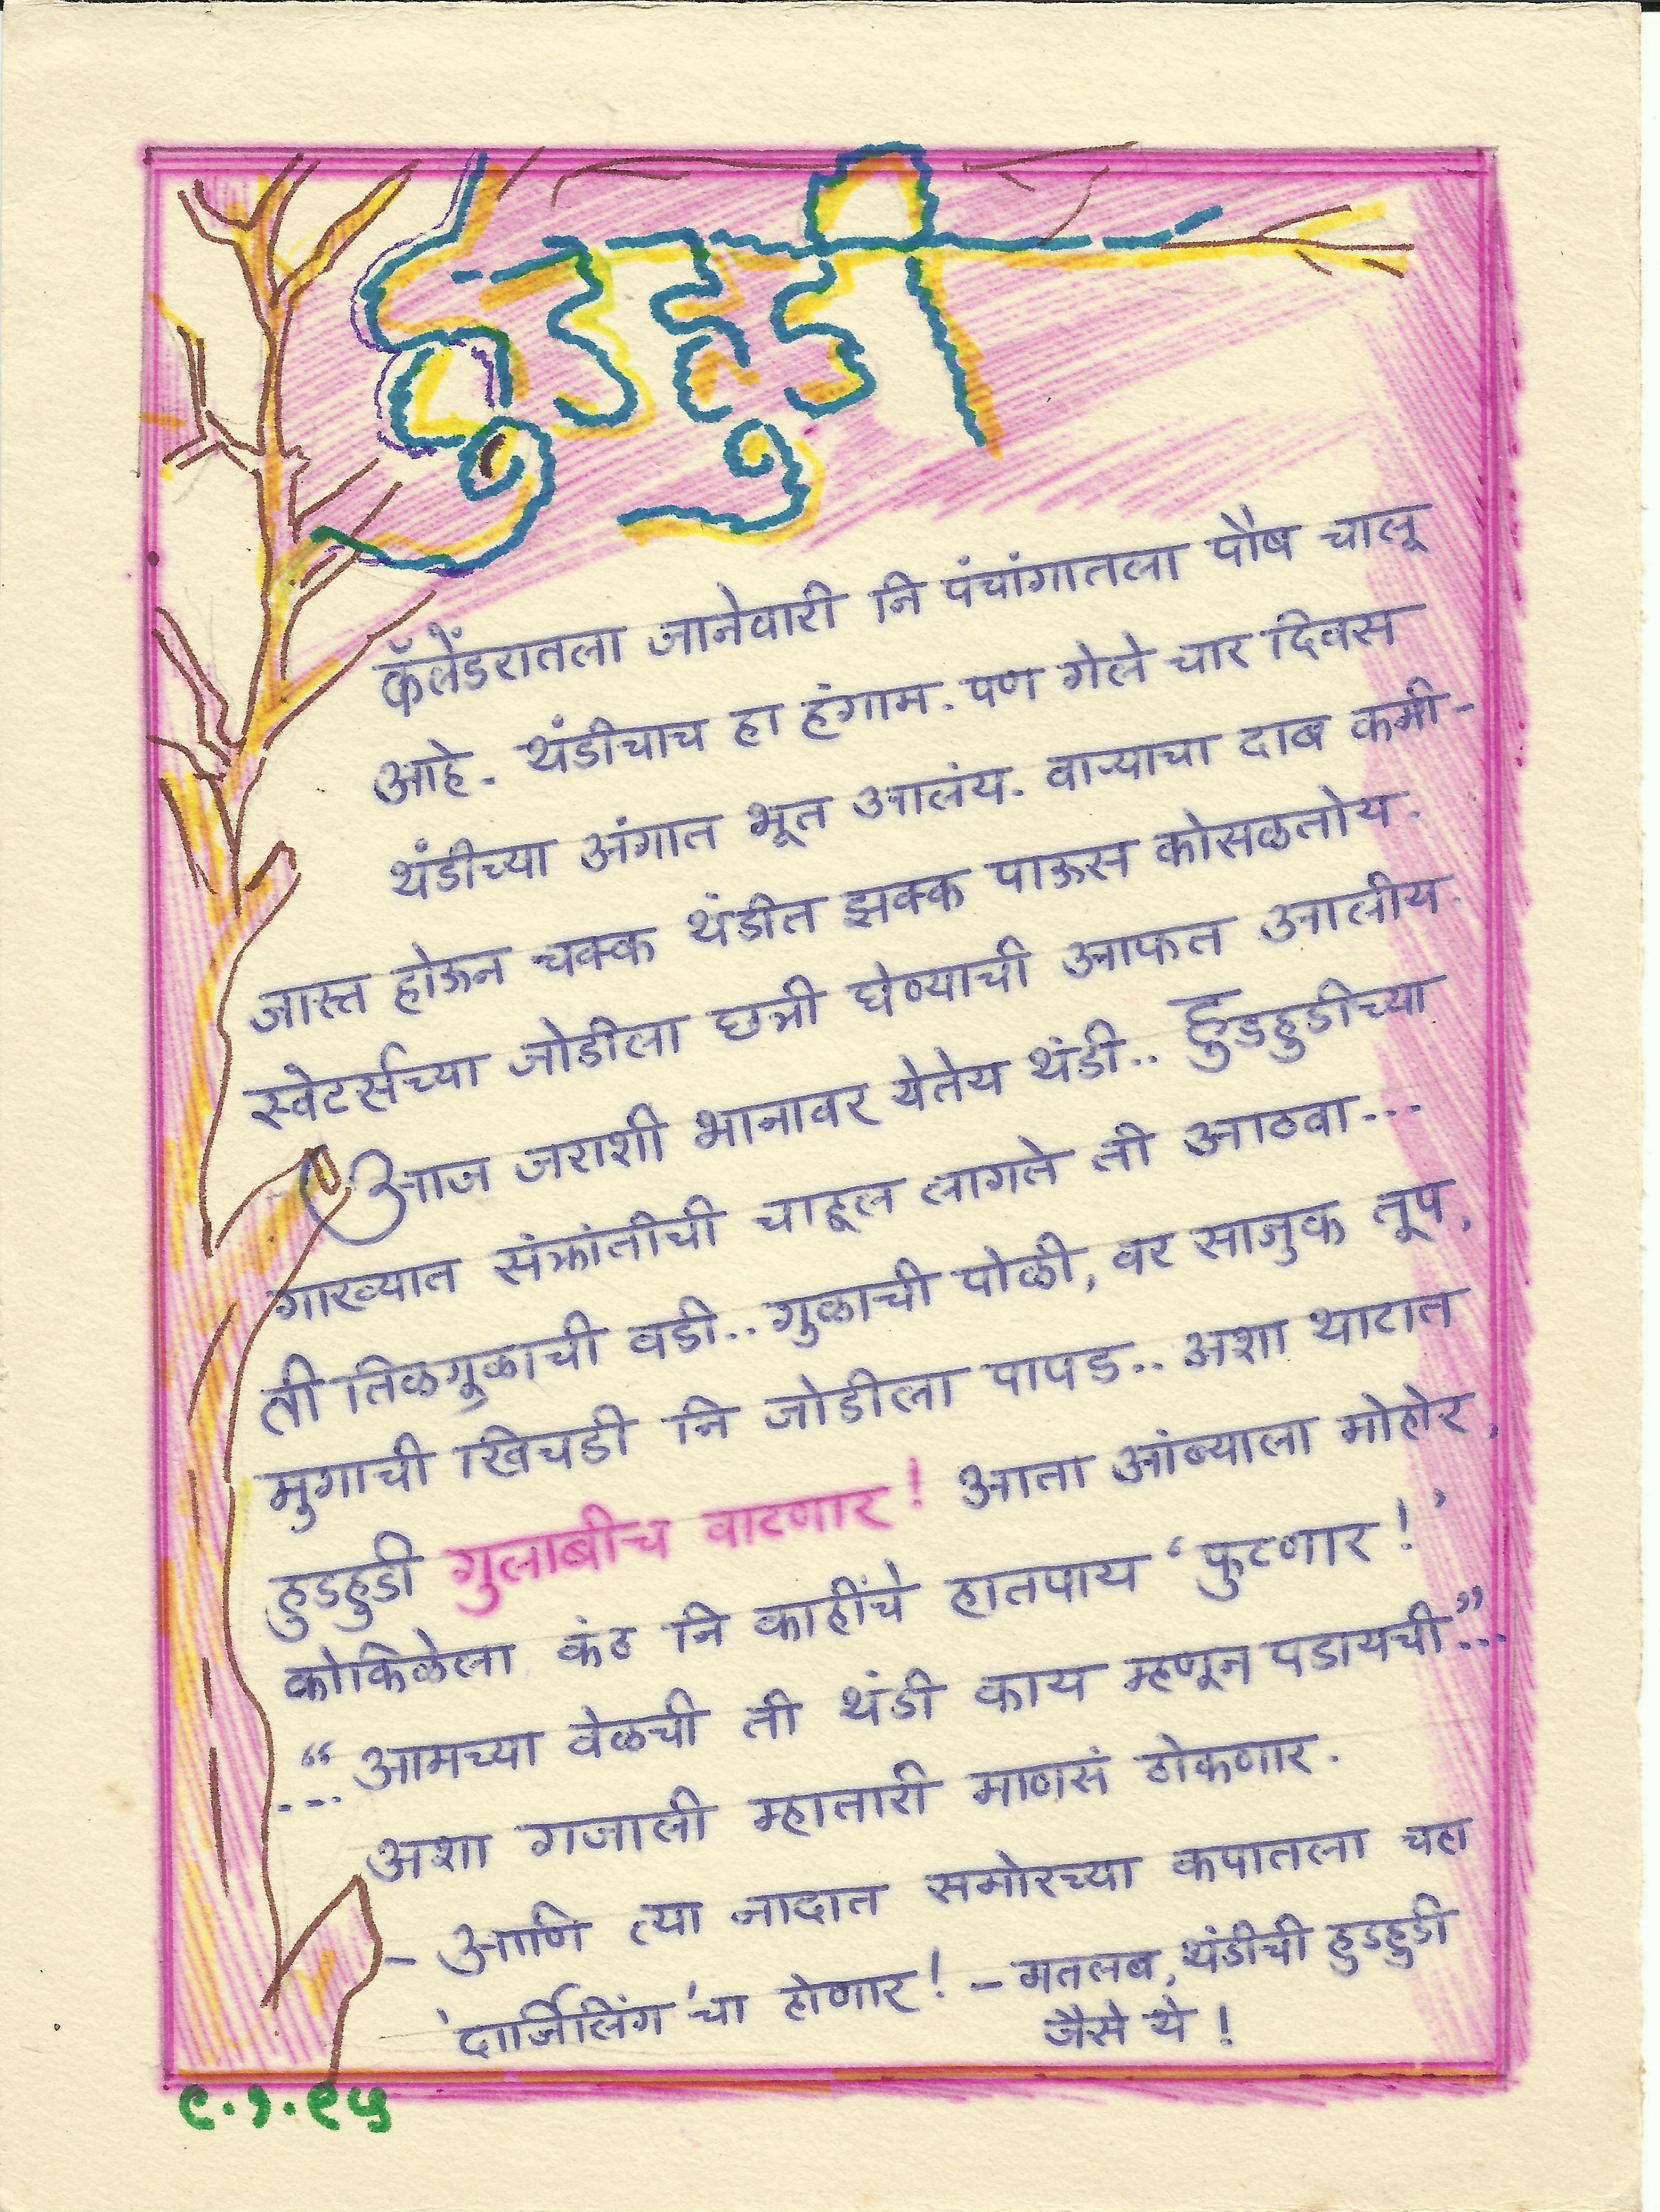 हुडहुडी
कॅलेंडरातला जानेवारी नि पंचांगातला पौष चालू
आहे. थंडीचाच हा हंगाम. पण गेले चार दिवस
थंडीच्या अंगात भूत आलंय. वाऱ्याचा दाब कमी-
जास्त होऊन चक्क थंडीत झक्क पाऊस कोसळतोय.
स्वेटर्सच्या जोडीला छत्री घेण्याची आफत आलीय.
आज जराशी भानावर येतेय थंडी.. हुडहुडीच्या
गारव्यात संक्रांतीची चाहूल लागते ती आठवा...
ती तिळगूळाची वडी.. गुळाची पोळी, वर साजुक तूप,
मुगाची खिचडी नि जोडीला पापड.. अशा थाटात
हुडहुडी गुलाबीच वाटणार! आता आंब्याला मोहोर,
कोकिळेला कंठ नि काहींचे हातपाय ‘फुटणार!’
...“आमच्या वेळची ती थंडी काय म्हणून पडायची”...
अशा गजाली म्हातारी माणसं ठोकणार.
- आणि त्या नादात समोरच्या कपातला चहा
'दार्जिलिंग'चा होणार! - मतलब, थंडीची हुडहुडी
जैसे थे!
९.१.९५